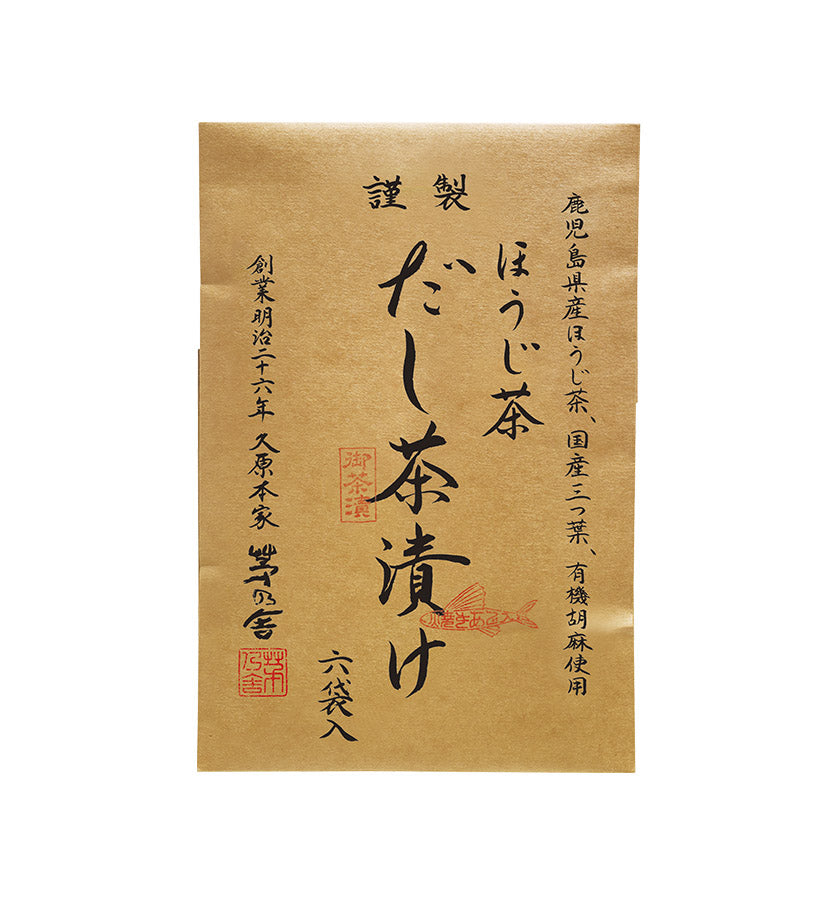 謹製
鹿児島県産ほうじ茶、国産三つ葉、有機胡麻使用
ほうじ茶
だし茶漬け
御茶漬
焼きあご入
六袋入
創業明治二十六年 久原本家 茅乃舎
茅乃舎